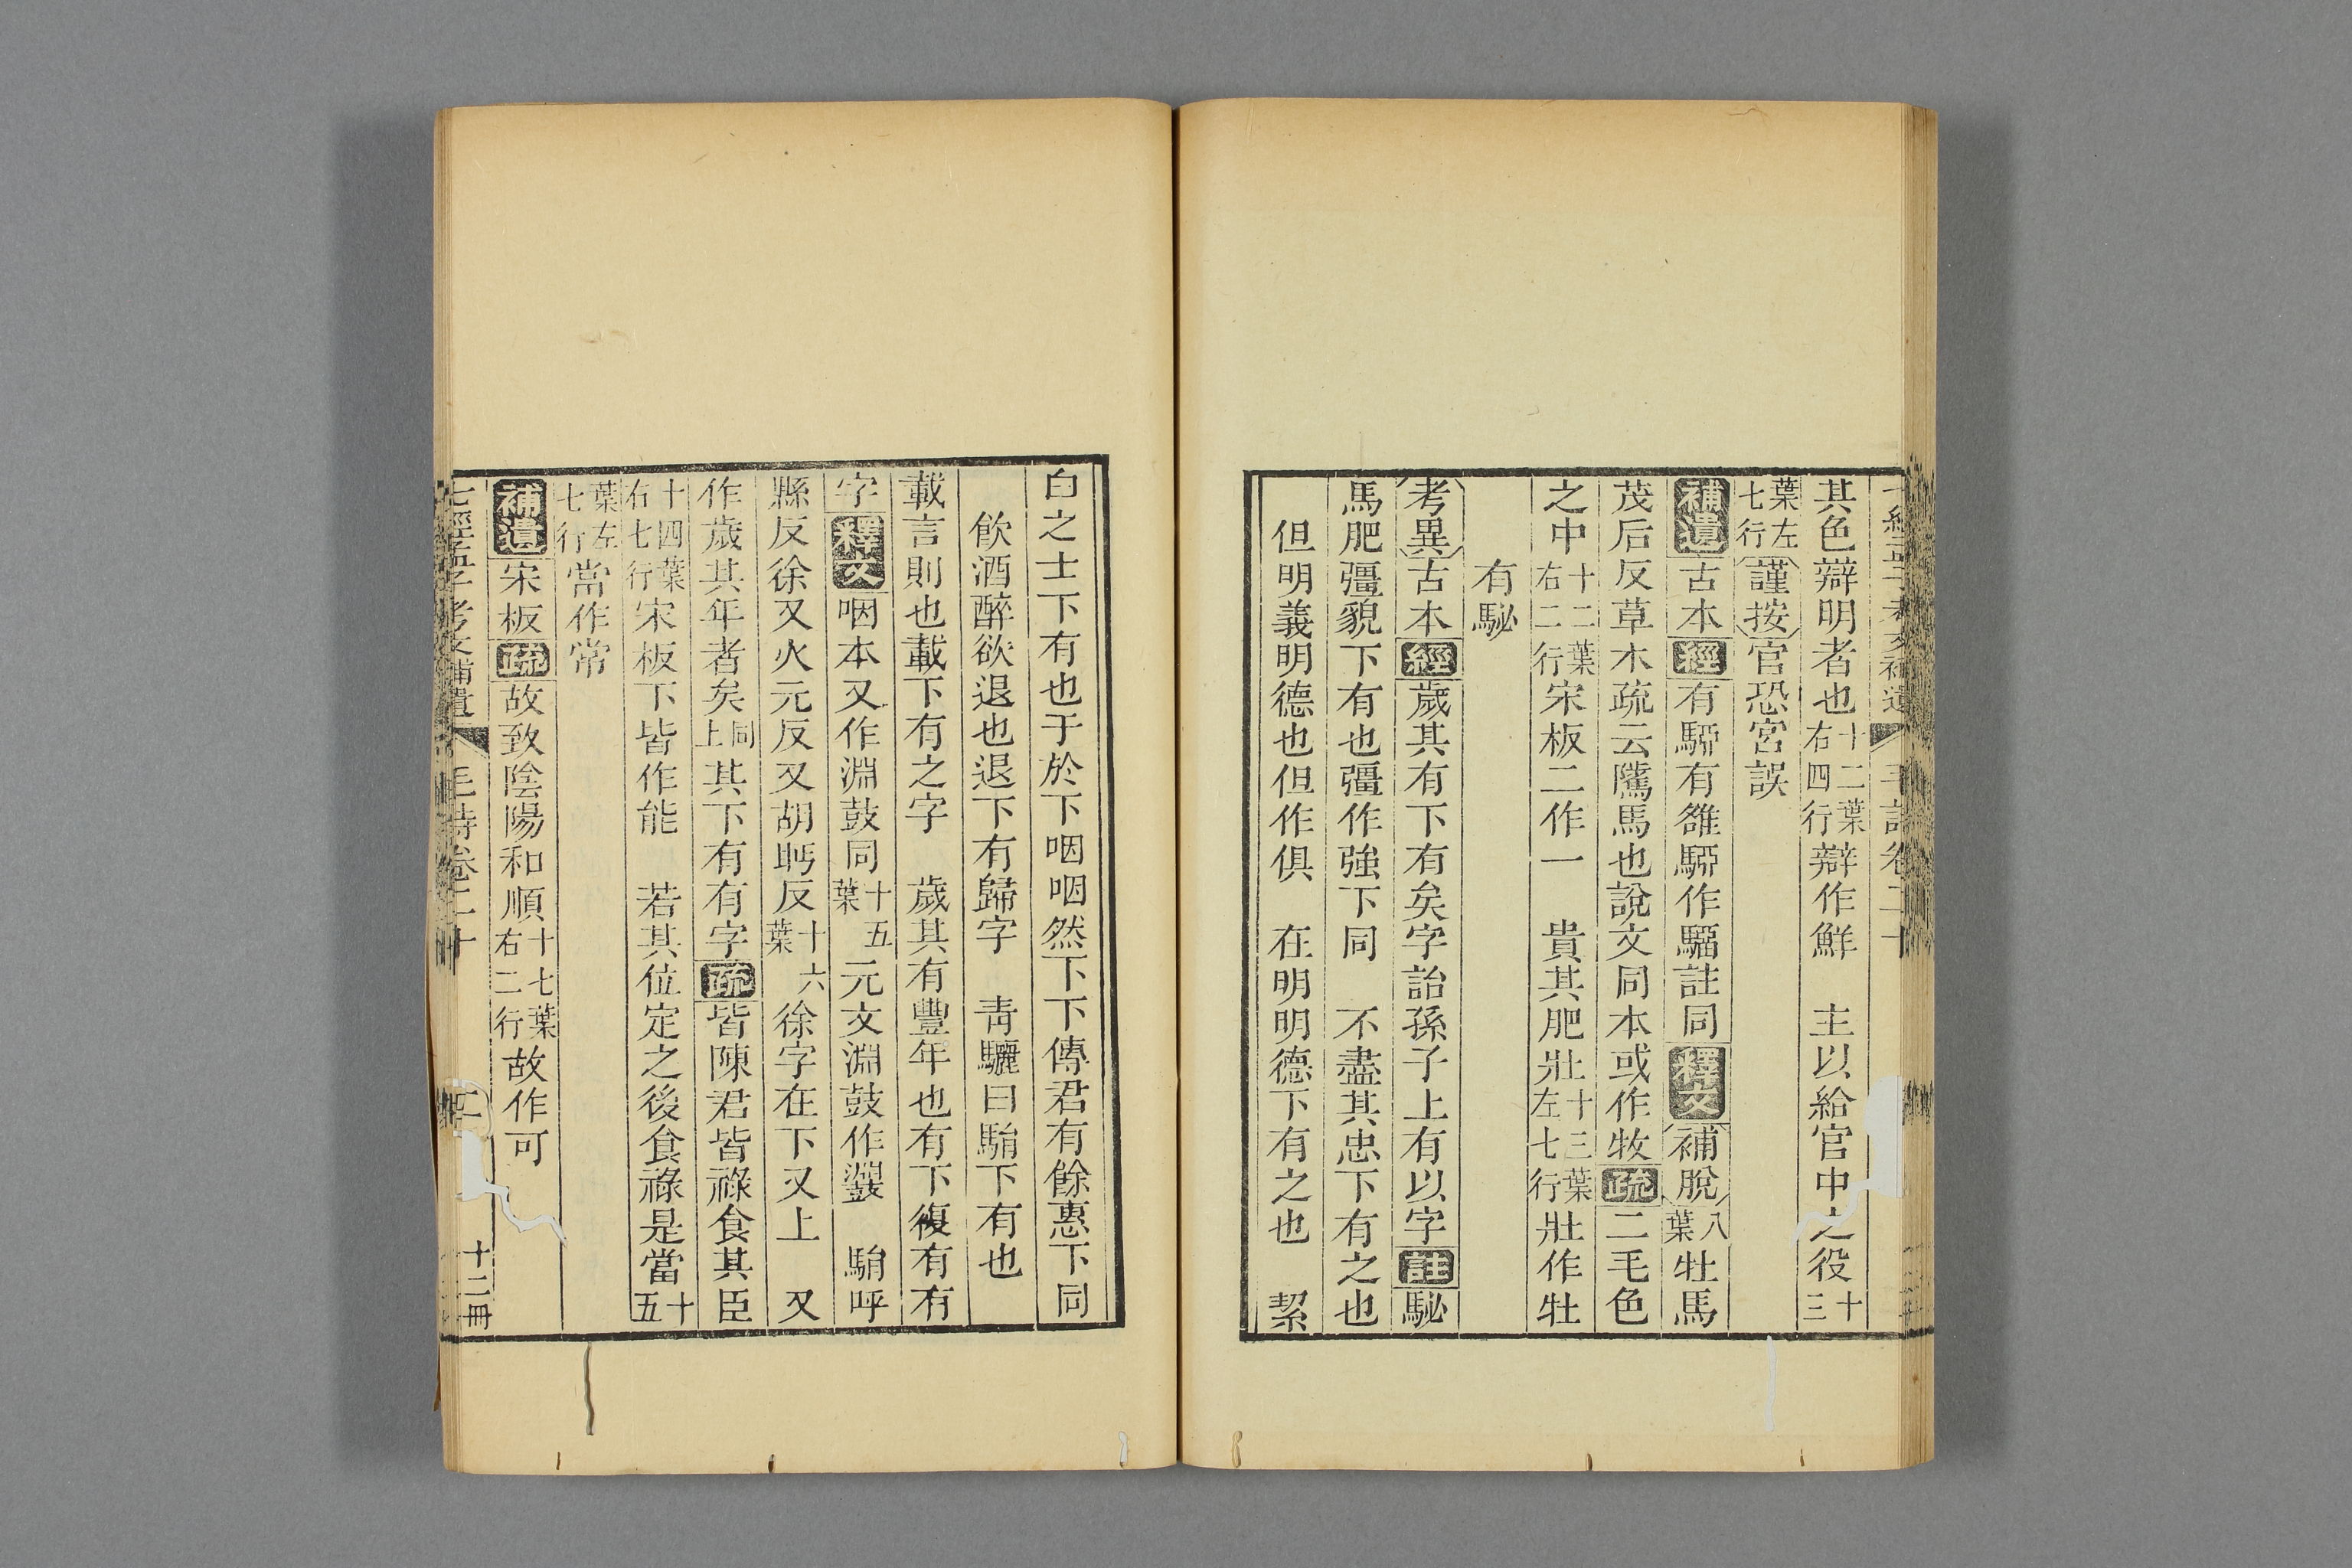 其色辯明者也十二葉右四行辯作鮮　主以給官中之役十三
葉左七行謹按官恐宮誤
補遺古本經有騢有雒騢作騮註同釋文補脫八葉牡馬
茂后反草木疏云騭馬也說文同本或作牧疏二毛色
之中十二葉右二行宋板二作一　貴其肥壯左十三葉七行壯作牡
有駜
考異古本經歲其有下有矣字詒孫子上有以字註駜
馬肥彊貌下有也彊作強下同　不盡其忠下有之也
但明義明德也但作俱　在明明德下有之也　絜
白之士下有也于於下咽咽然下下傳君有餘惠下同
飲酒醉欲退也退下有歸字　靑驪曰駽下有也
載言則也載下有之字　歲其有豐年也有下復有有
字釋文咽本又作淵鼓同十五葉元文淵鼓作鼝　駽呼
縣反徐又火元反又胡眄反十六葉徐字在下又上　又
作歲其年者矣同上其下有有字疏皆陳君皆祿食其臣
十四葉右七行宋板下皆作能　若其位定之後食祿是當十五
葉左七行當作常
補遺宋板疏故致陰陽和順十七葉右二行故作可
七經孟子考文補遺　毛詩卷二十　十二冊